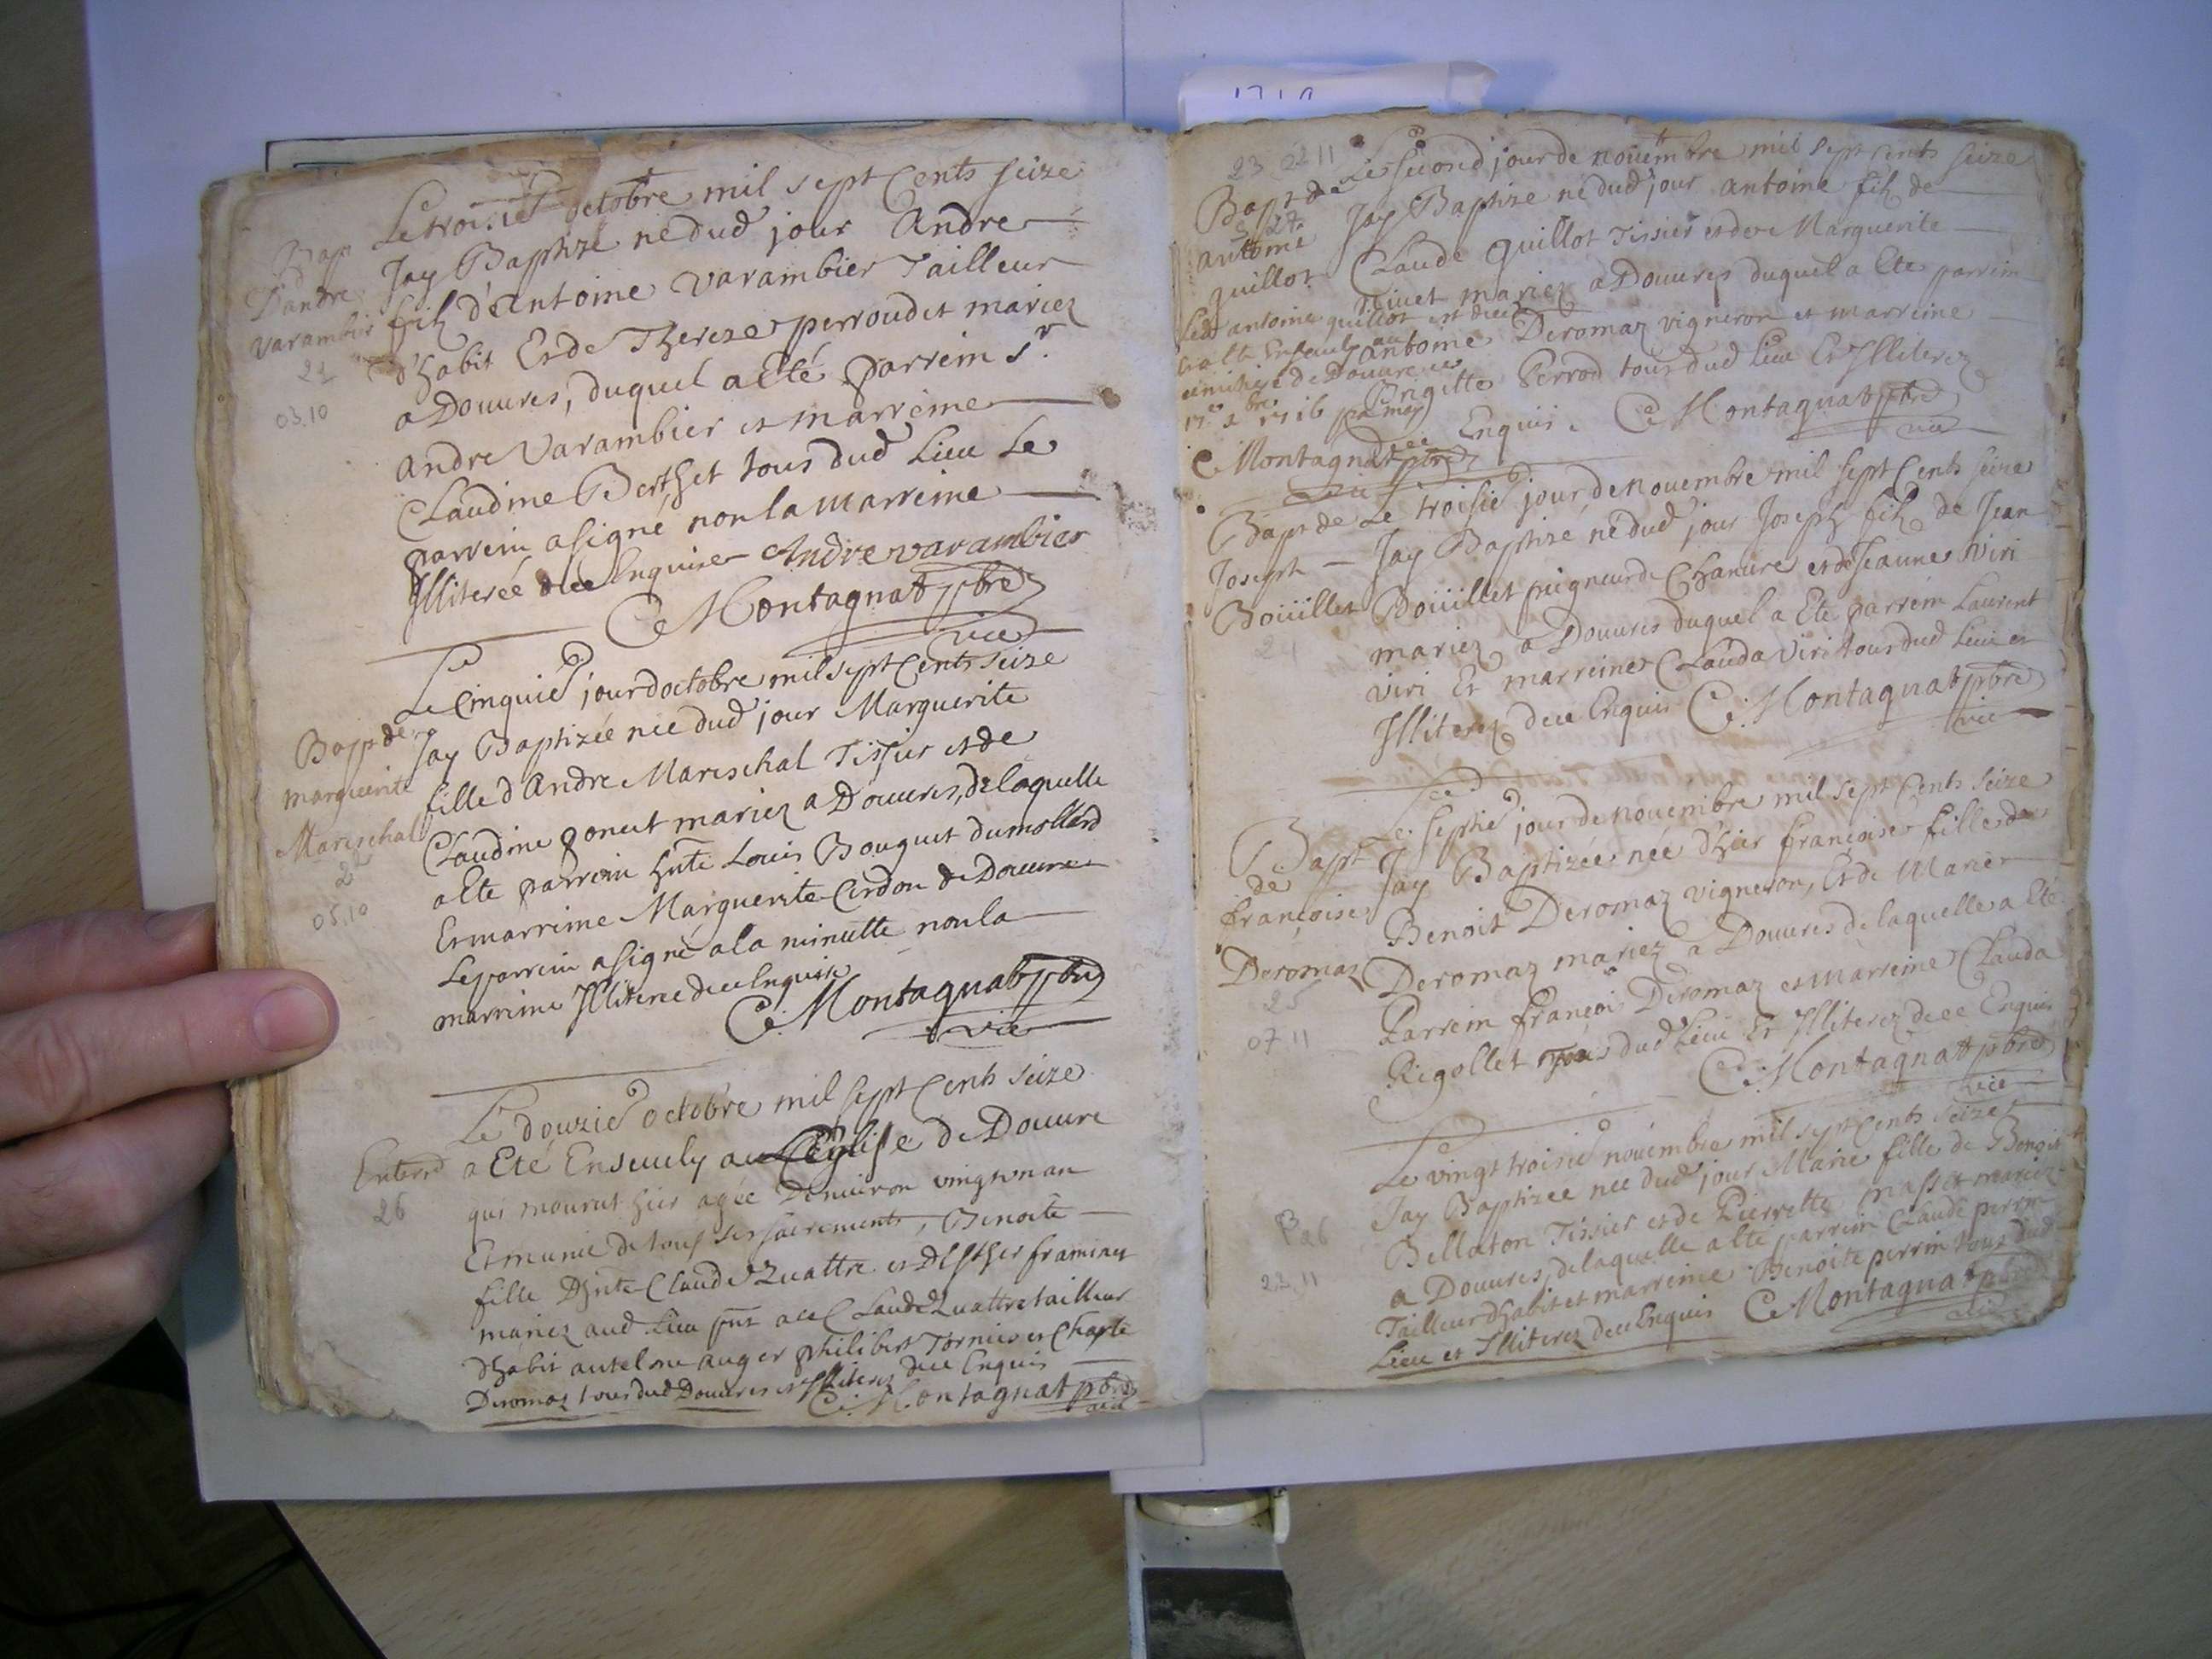 Le troisie octobre mil sept Cents seize
Jay Baptizé né dud jour Andre
filz d'Antoine Varambier Tailleur
d'habit Et de Thereze perroudet mariez
a Douures, duquel a Eté parrein Sr.
Andre Varambier et marreine
Claudine Berthet tous dud Lieu Le
parrein a signé non la marreine
Illiterée de ce Enquise Andre varambier
C. Montagnat pbre
vic
Bap
D'andre
Varambier
21
03.10
Le Cinquie jour d'octobre mil sept Cents seize
Jay Baptizée née dud jour Marguerite
fille d'Andre Mareschal Tissier et de
Claudine gonet mariez a Douures, de laquelle
a Ete parrein hnte Louis Bouguet du mollard
Et marreine Marguerite Cerdon de Douure
Le parrein a signé a la minutte non la
marreine Illiteree de ce Enquise
C. Montagnat pbre
vic
Bapt de
marguerite
Mareschal
05.10
Le douzie octobre mil sept Cents seize
a Eté Enseuely a L'Eglise de Douure
qui mourut hier agée D'enuiron vingt un an
Et munie de tous ses sacrements, Benoite
fille D'hnte Claude Quattre et D'Esther framinet
mariez aud Lieu pnt a ce Claude Quattre tailleur
d'habit antelme auger philibert Tornier et Charle
Deromaz tous dud Douures et Illiterez de ce Enquis
C. Montagnat pbre
vic
Enterrt
26
23 02 11
Le second jour de nouembre mil sept Cents seize
Jay Baptize né dud jour antoine filz de
Claude guillot Tissier et de Marguerite
niuet mariez a Douures duquel a Ete parrein
antoine Deromaz vigneron et marreine
Brigitte Perrod tous dud Lieu Et Illiterez
de ce Enquis. C. Montagnat pbre
vic
Bapt de
antoine
guillot
Led antoine guillot est
a Ete Enseuely au
cimitiere de Douure
1716 par moy
C Montagnat pbre
vic
Le troisie jour de nouembre mil sept Cents seize
Jay Baptizé né dud jour Joseph filz de Jean
Boüillet peigneur de Chanure et de Jeanne Viri
mariez a Douures duquel a Ete parrein Laurent
Viri Et marreine Clauda Viri tous dud Lieu et
Illiterez de ce Enquis C. Montagnat pbre
vic
Bapt de
Joseph
Boüillet
24
Le septie jour de nouembre mil sept Cents seize
Jay Baptizée née d'hier françoise fille de
Benoit Deromaz vigneron, Et de Marie
Deromaz mariez a Douures de laquelle a Eté
Parrein françois Deromaz et marreine Clauda
Rigollet tous dud Lieu Et Illiterez de ce Enquis
C. Montagnat pbre
vic
Bapt
de
françoise
Deromaz
25
07 11
Le vingt troisie nouembre mil sept Cents seize
Jay Baptizée née dud jour Marie fille de Benoit
Bellaton Tissier et de Pierrette masset mariez
a Douures, de laquelle a Ete parrein Claude perrin
Tailleur d'habit et marreine Benoite perrin tous dud
Lieu et Illiterez de ce Enquis C Montagnat pbre
vic
B 26
23.11